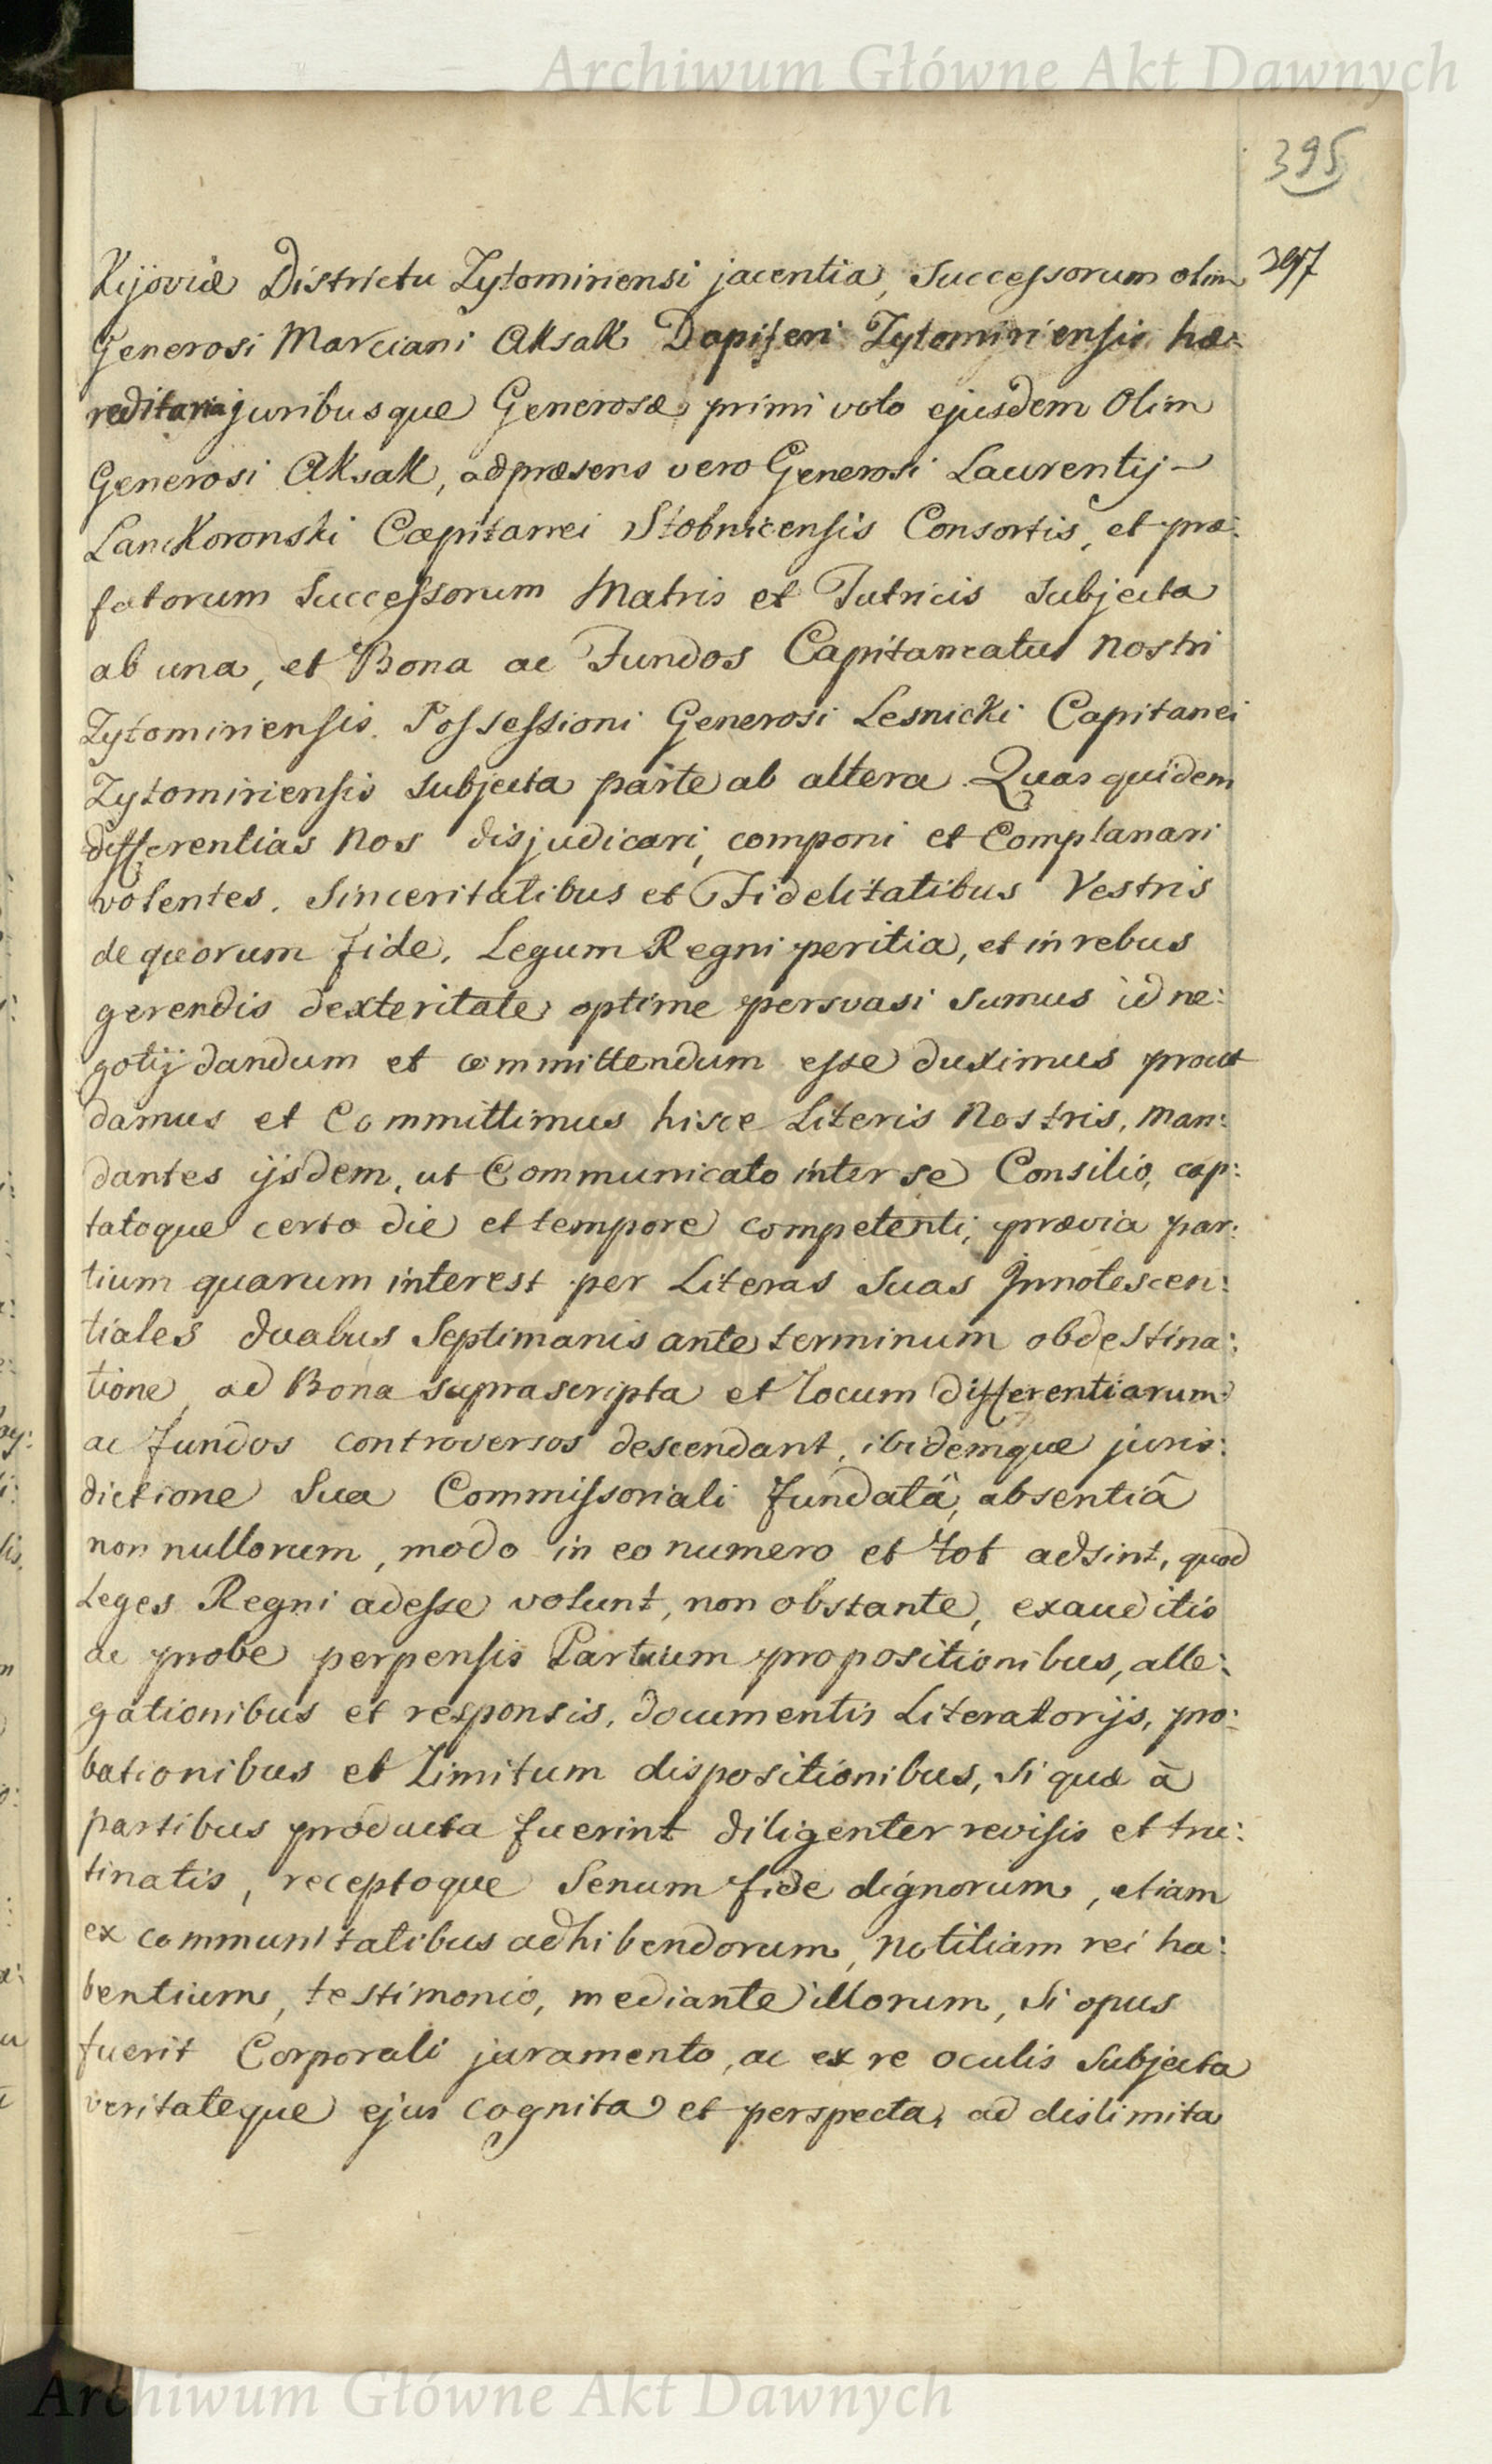 Archiwum Główne Akt Dawnych
395
397
Kijoviæ Districtu Zytomiriensi jacentia, Successorum olim
Generosi Marciani Aksak Dapiferi Zytomiriensis hæ:
reditaria juribusque Generosæ primi voto ejusdem Olim
Generosi Aksak, ad præsens vero Generosi Laurentij –
Lanckoronski Capitanei Stobnicensis Consortis, et præ:
fatorum Successorum Matris et Tutricis Subjecta
ab una, et Bona ac Fundos Capitaneatus Nostri
Zytomiriensis. Possessioni Generosi Lesnicki Capitanei
Zytomiriensis subjecta parte ab altera. Quas quidem
differentias Nos disjudicari, componi et Complanari
volentes. Sinceritatibus et Fidelitatibus Vestris
de quorum fide, Legum Regni peritia, et in rebus
gerendis dexteritate optime persvasi sumus id ne:
gotij dandum et committendum esse duximus prout
damus et Committimus hisce Literis Nostris, Man:
dantes ijsdem, ut Communicato inter se Consilio, cap:
tatoque certo die et tempore competenti, prævia par:
tium quarum interest per Literas Suas Innotescen:
tiales duabus Septimanis ante terminum obdestina:
tione, ad Bona suprascripta et locum differentiarum
ac fundos controversos descendant, ibidemque juris:
dictione Sua Commissoriali fundatâ, absentiâ
non nullorum, modo in eo numero et tot adsint, quod
Leges Regni adesse volunt, non obstante, exauditis
ac probe perpensis Partium propositionibus, alle:
gationibus et responsis, documentis Literatorijs, pro:
bationibus et Limitum dispositionibus, si quæ à
partibus producta fuerint diligenter revisis et tru:
tinatis, receptoque Senum fide dignorum, etiam
ex communitatibus adhibendorum, notitiam rei ha:
bentium, testimonio, mediante illorum, si opus
fuerit Corporali juramento, ac ex re oculis Subjecta
veritateque ejus cognita et perspecta, ad dislimita
Archiwum Główne Akt Dawnych